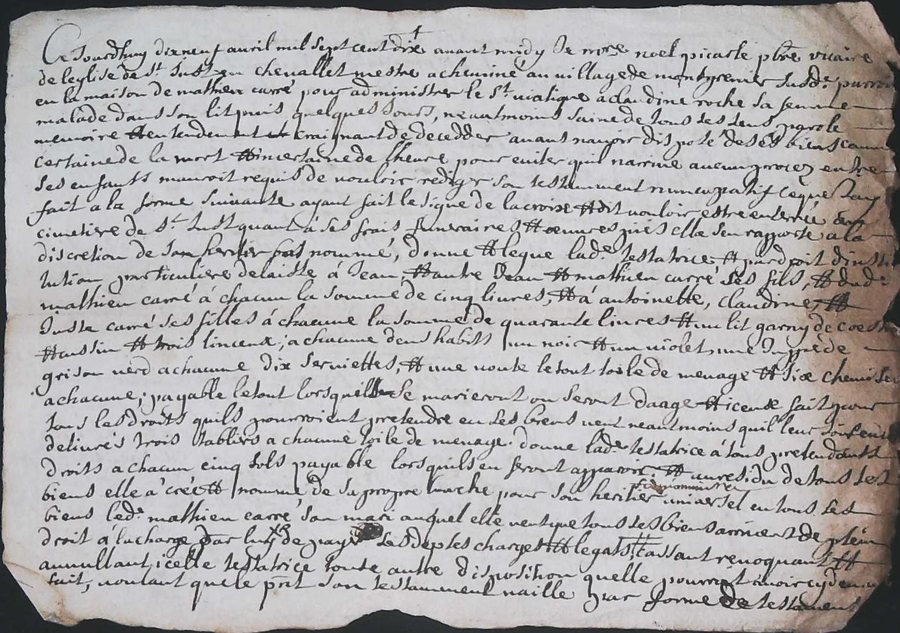 Ce Jourdhuy dixneuf avril mil sept cent dix avant midy Je mre noel picarle pbre vicaire
de leglise de St Just en chevallet mestre acheminé au village de montgrenier susde parroi
en la maison de mathieu carré pour administrer le St viatique a claudine roche sa femme
malade dans son lit puis quelques Jours, neautmoins saine de tous ses sens parole
memoire et entendement et craignant de decedder avant navoir disposé de ses biens comme
certaine de la mort et incertaine de lheure pour eviter quil narrive aucun procez entre
ses enfants mauroit requis de vouloir rediger son testamment nuncupatif ce que Jay
fait a la forme suivante ayant fait le signe de la croix et dit vouloir estre enterrée au
cimetière de St Just quant à ses frais funeraires et œuvres pies elle sen rapporte a la
discretion de son heritier bas nommé, donne et legue lade testatrice et par droit dinsti
tution particuliere delaisse à Jean, et autre Jean et mathieu carré ses fils, et dude
mathieu carré à chacun la somme de cinq livres, et à antoinette, claudine, et
Juste carré ses filles à chacune la somme de quarante livres et un lit garny de coestre
et cussin et trois linceux; a chacune deux habits un noir et un violet, une Juppe de
grison verd a chacune dix serviettes, et une noute le tout toile de menage et six chemises
a chacune; payable le tout lorsquelles se marieront ou seront daage et ice fait pour
tous les droits quils pourroient pretendre en ses biens veut neantmoins quil leur
delivrés trois tabliers a chacune toile de menage. donne lade testatrice à tous pretendants
droits a chacun cinq sols payable lorsquils en seront apparoir et au residu de tous ses
biens elle à créé et nommé de sa propre bouche pour son heritier universel en tous ses
biens lede mathieu carré son mari auquel elle veut que tous ses biens arrivent de plein
droit a la charge par luy de payer ses deptes charges et legats, cassant revoquant et
annullant icelle testatrice toute autre disposition quelle pourroit avoir cy devant
fait, voulant que le pnt son testamment vaille par forme de testament